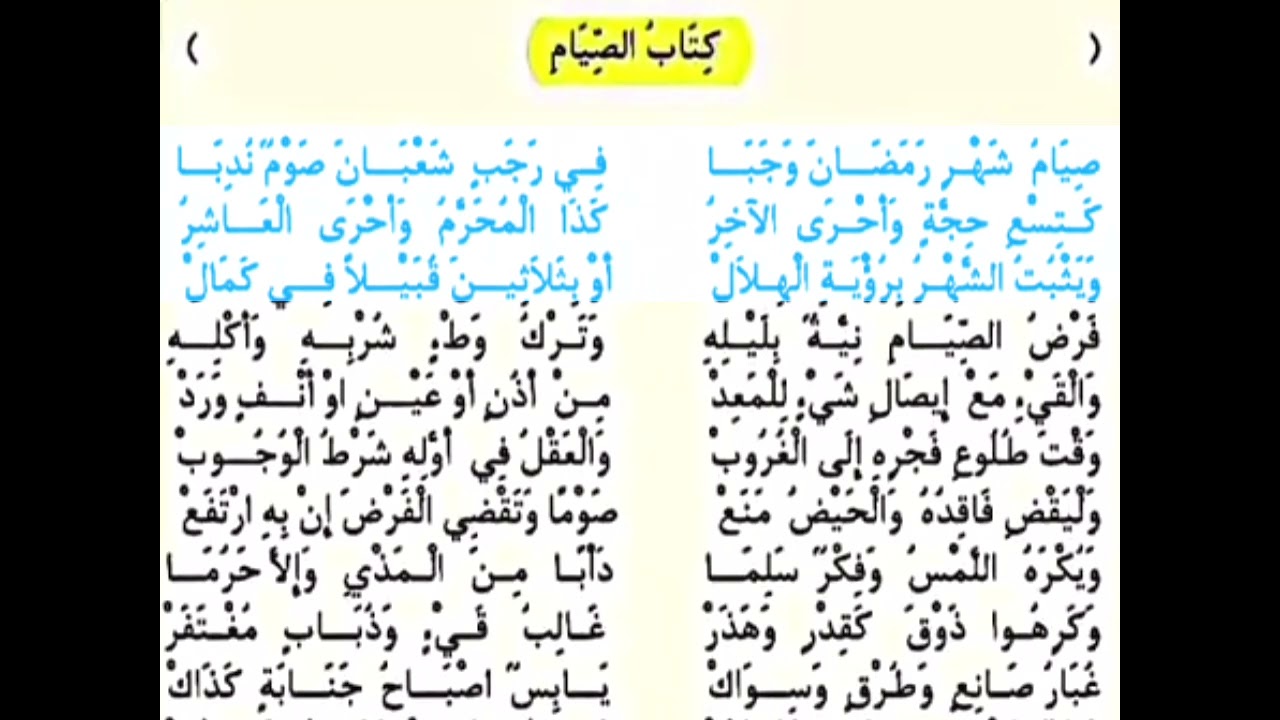 ( كِتَابُ الصِّيَامِ )
صِيَامُ شَهْرِ رَمَضَانَ وَجَبَا فِي رَجَبٍ شَعْبَانَ صَوْمٌ نُدِبَا
كَتِسْعِ حِجَّةٍ وَأَحْرَى الآخِرُ كَذَا الْمُحَرَّمُ وَأَحْرَى الْعَاشِرُ
وَيَثْبُتُ الشَّهْرُ بِرُؤْيَةِ الْهِلاَلْ أَوْ بِثَلاَثِينَ قُبَيْلاً فِي كَمَالْ
فَرْضُ الصِّيَامِ نِيَّةٌ بِلَيْلِهِ وَتَرْكُ وَطْءٍ شُرْبِهِ وَأَكْلِهِ
وَالْقَيْءِ مَعْ إِيصَالِ شَيْءٍ لِلْمَعِدْ مِنْ أُذُنٍ أَوْ عَيْنٍ اوْ أَنْفٍ وَرَدْ
وَقْتَ طُلُوعِ فَجْرِهِ إِلَى الْغُرُوبْ وَالْعَقْلُ فِي أَوَّلِهِ شَرْطُ الْوُجُوبْ
وَلْيَقْضِ فَاقِدُهُ وَالْحَيْضُ مَنَعْ صَوْمًا وَتَقْضِي الْفَرْضَ إِنْ بِهِ ارْتَفَعْ
وَيُكْرَهُ اللَّمْسُ وَفِكْرٌ سَلِمَا دَأْبًا مِنَ الْمَذْيِ وَإِلاَّ حَرُمَا
وَكَرِهُوا ذَوْقَ كَقِدْرٍ وَهَذَرْ غَالِبُ قَيْءٍ وَذُبَابٍ مُغْتَفَرْ
غُبَارُ صَانِعٍ وَطُرْقٍ وَسِوَاكْ يَابِسٌ اصْبَاحُ جَنَابَةٍ كَذَاكْ